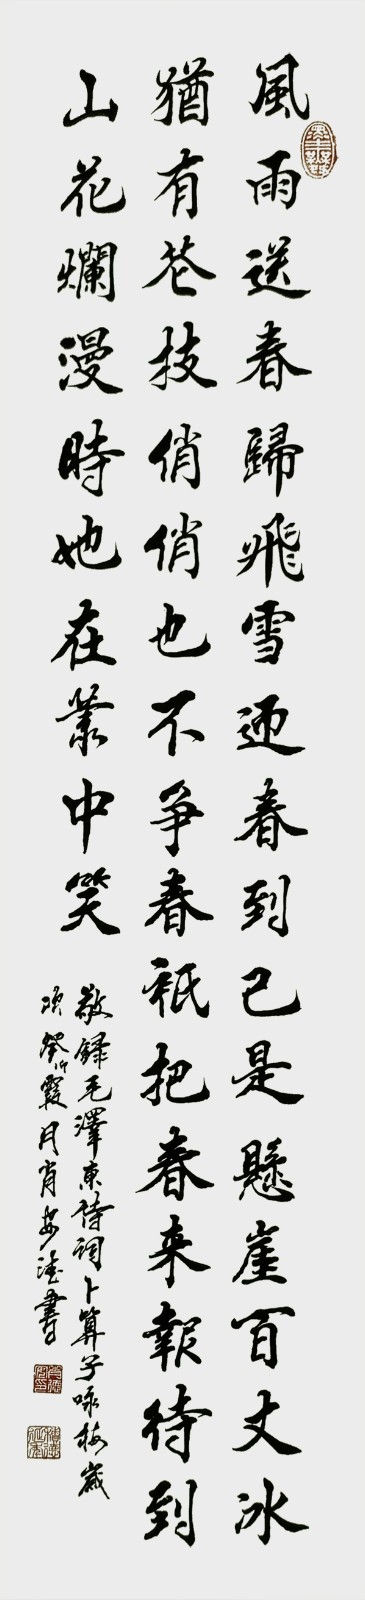 風雨送春歸飛雪迎春到已是懸崖百丈冰
猶有花技俏俏也不爭春祇把春来報待到
山花爛漫時她在叢中笑
敬錄毛澤東詩詞卜算子咏梅歲
癸卯霞月肖
書